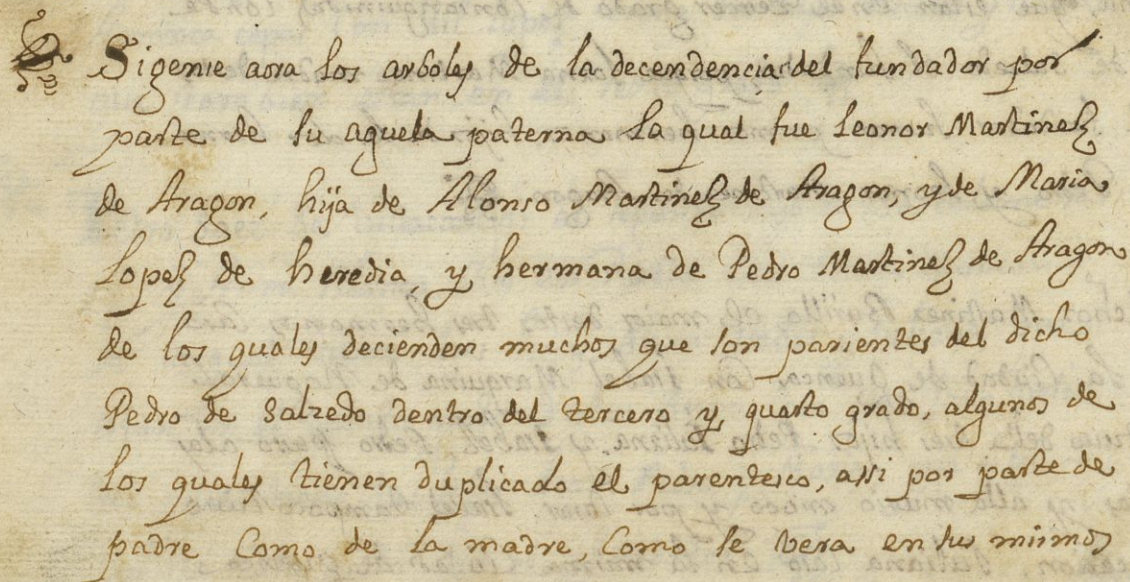 Sigense aora los arboles de la decendencia del fundador por
parte de su aguela paterna la qual fue Leonor Martinez
de Aragon, hija de Alonso Martinez de Aragon, y de Maria
Lopez de heredia, y hermana de Pedro Martinez de Aragon
de los quales decienden muchos que son parientes del dicho
Pedro de Salzedo dentro del tercero y quarto grado, algunos de
los quales tienen duplicado el parentesco, assi por parte de
padre Como de la madre, Como se vera en sus mismos